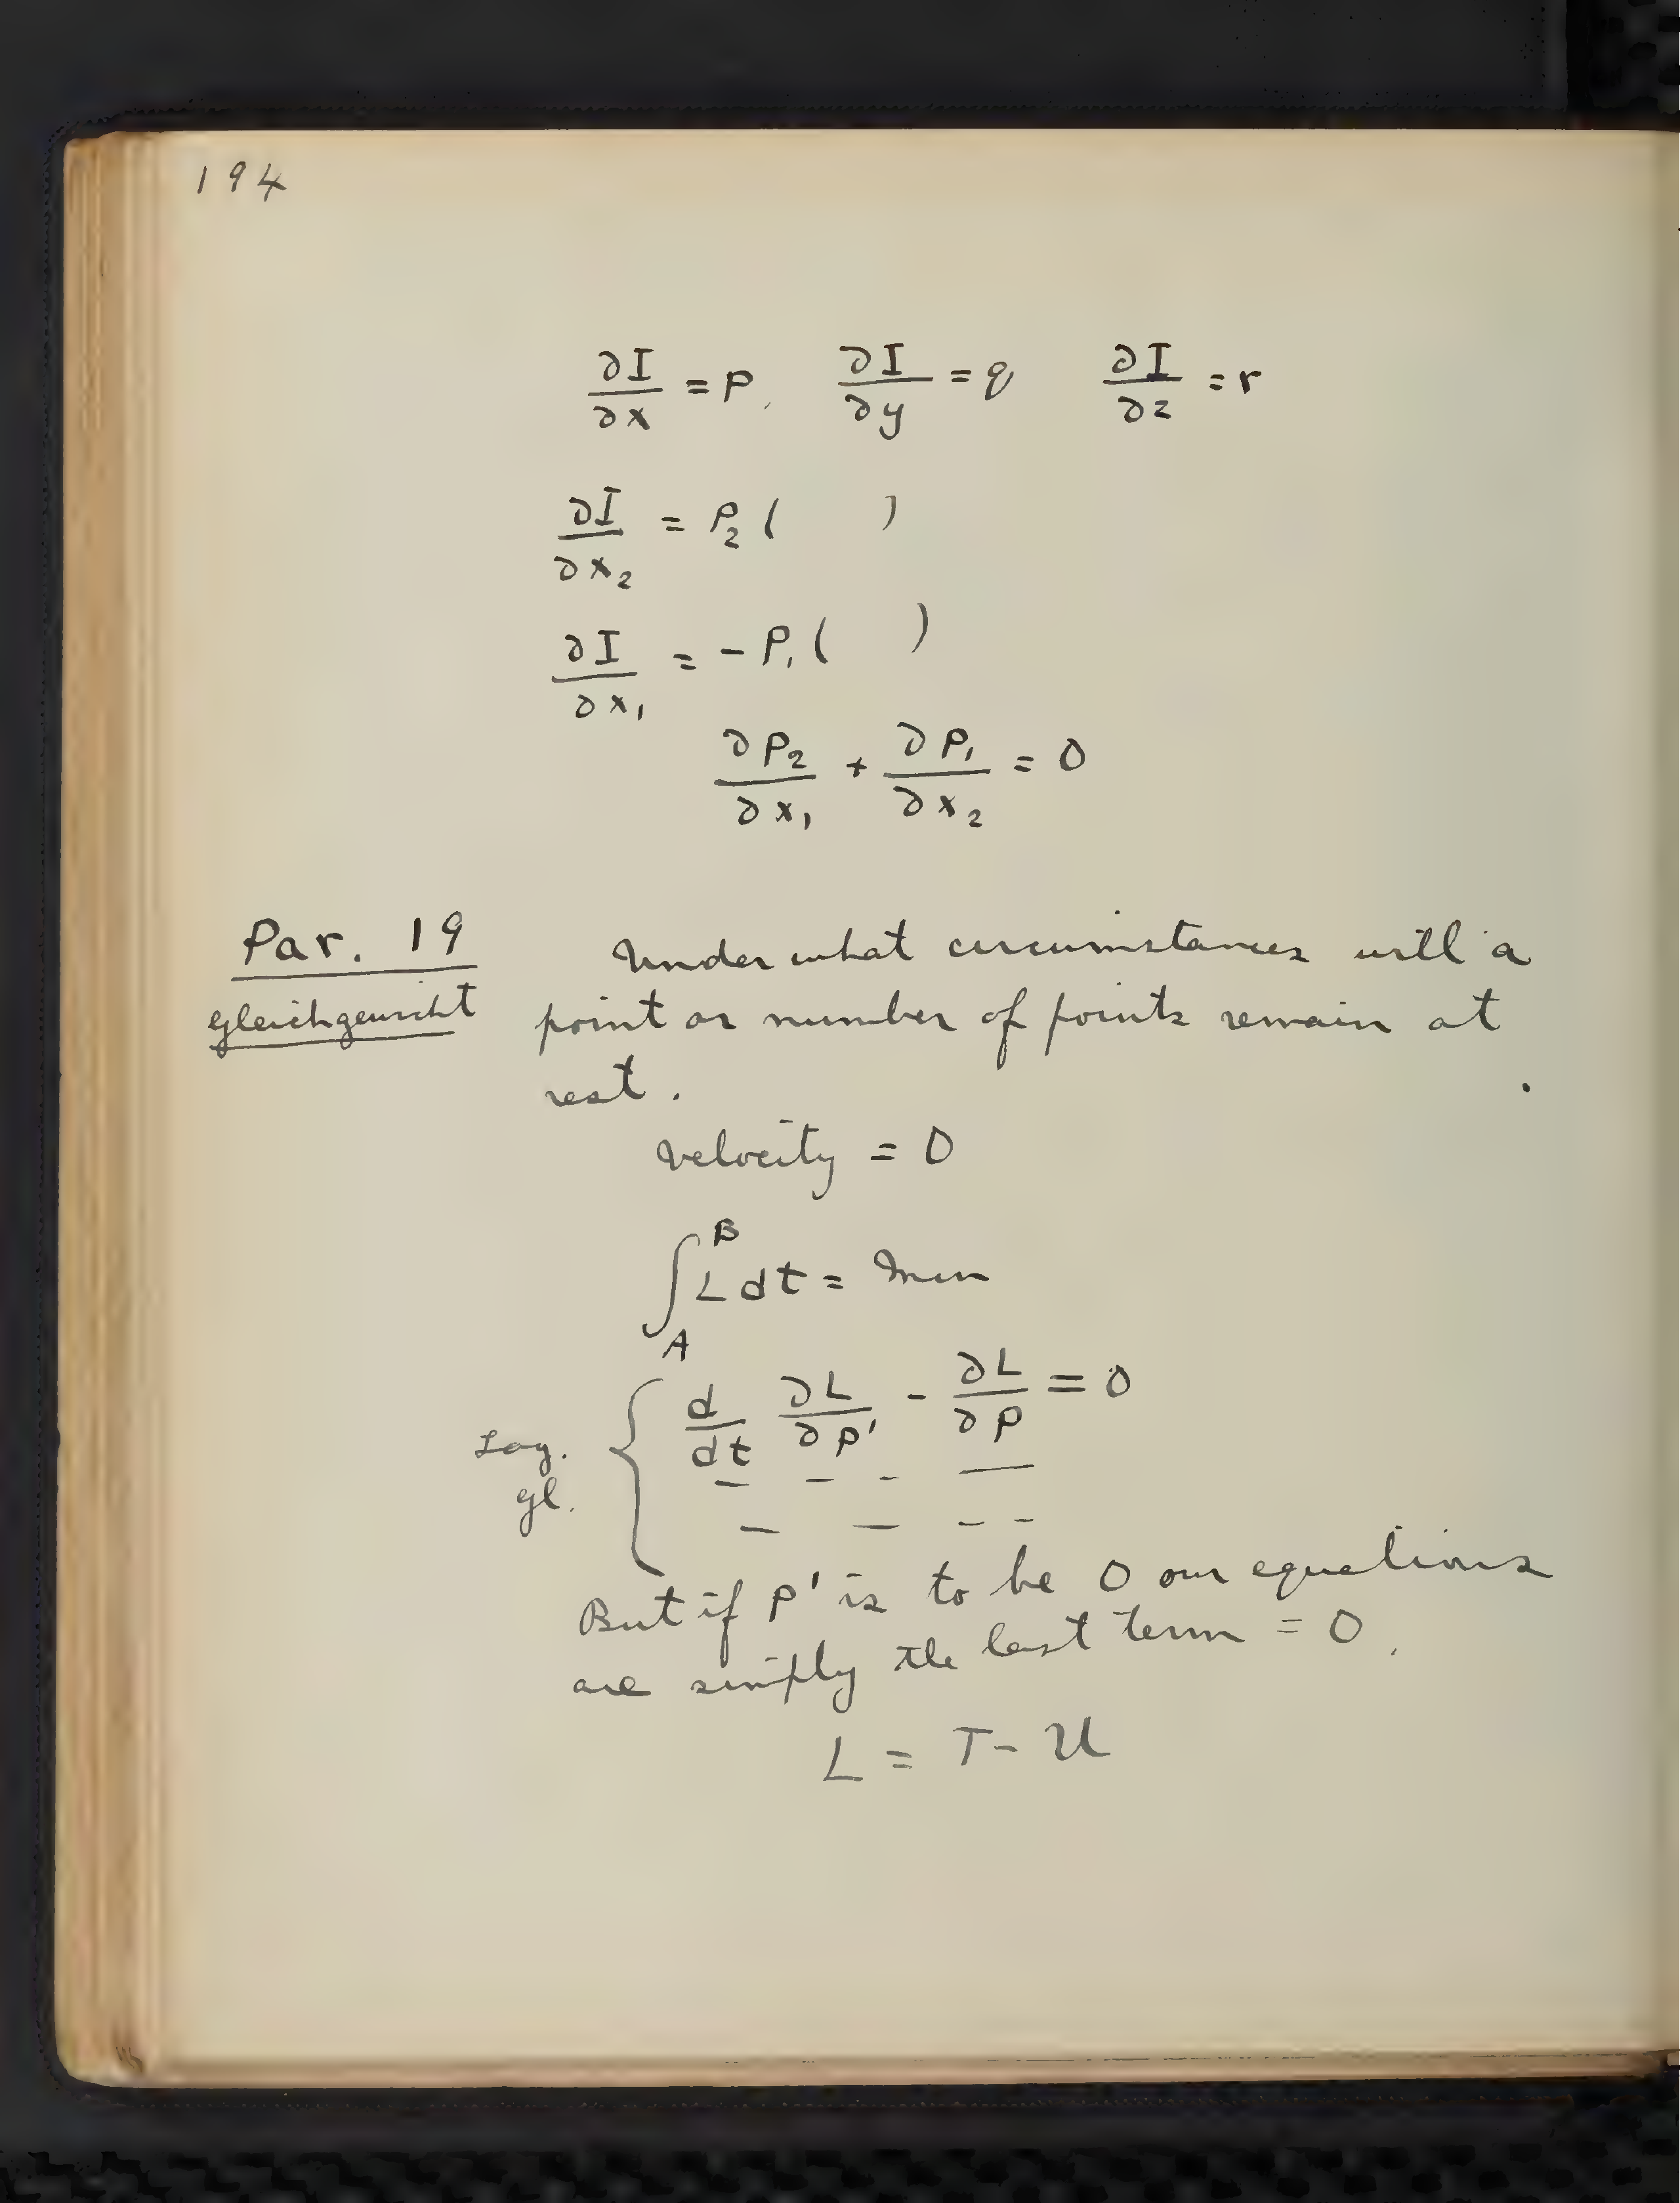 194
∂I/∂x = p, ∂I/∂y = q ∂I/∂z = r
∂I/∂x₂ = p₂ ( )
∂I/∂x₁ = - p₁ ( )
∂p₂/∂x₁ + ∂p₁/∂x₂ = 0
Par. 19 Under what circumstances will a
gleichgewicht point or number of points remain at
rest.
velocity = 0
∫_A^B L dt = Min
Lag. gl. { d/dt ∂L/∂p' - ∂L/∂p = 0
— - - —
— — - -
But if p' is to be 0 our equations
are simply the last term = 0.
L = T - U